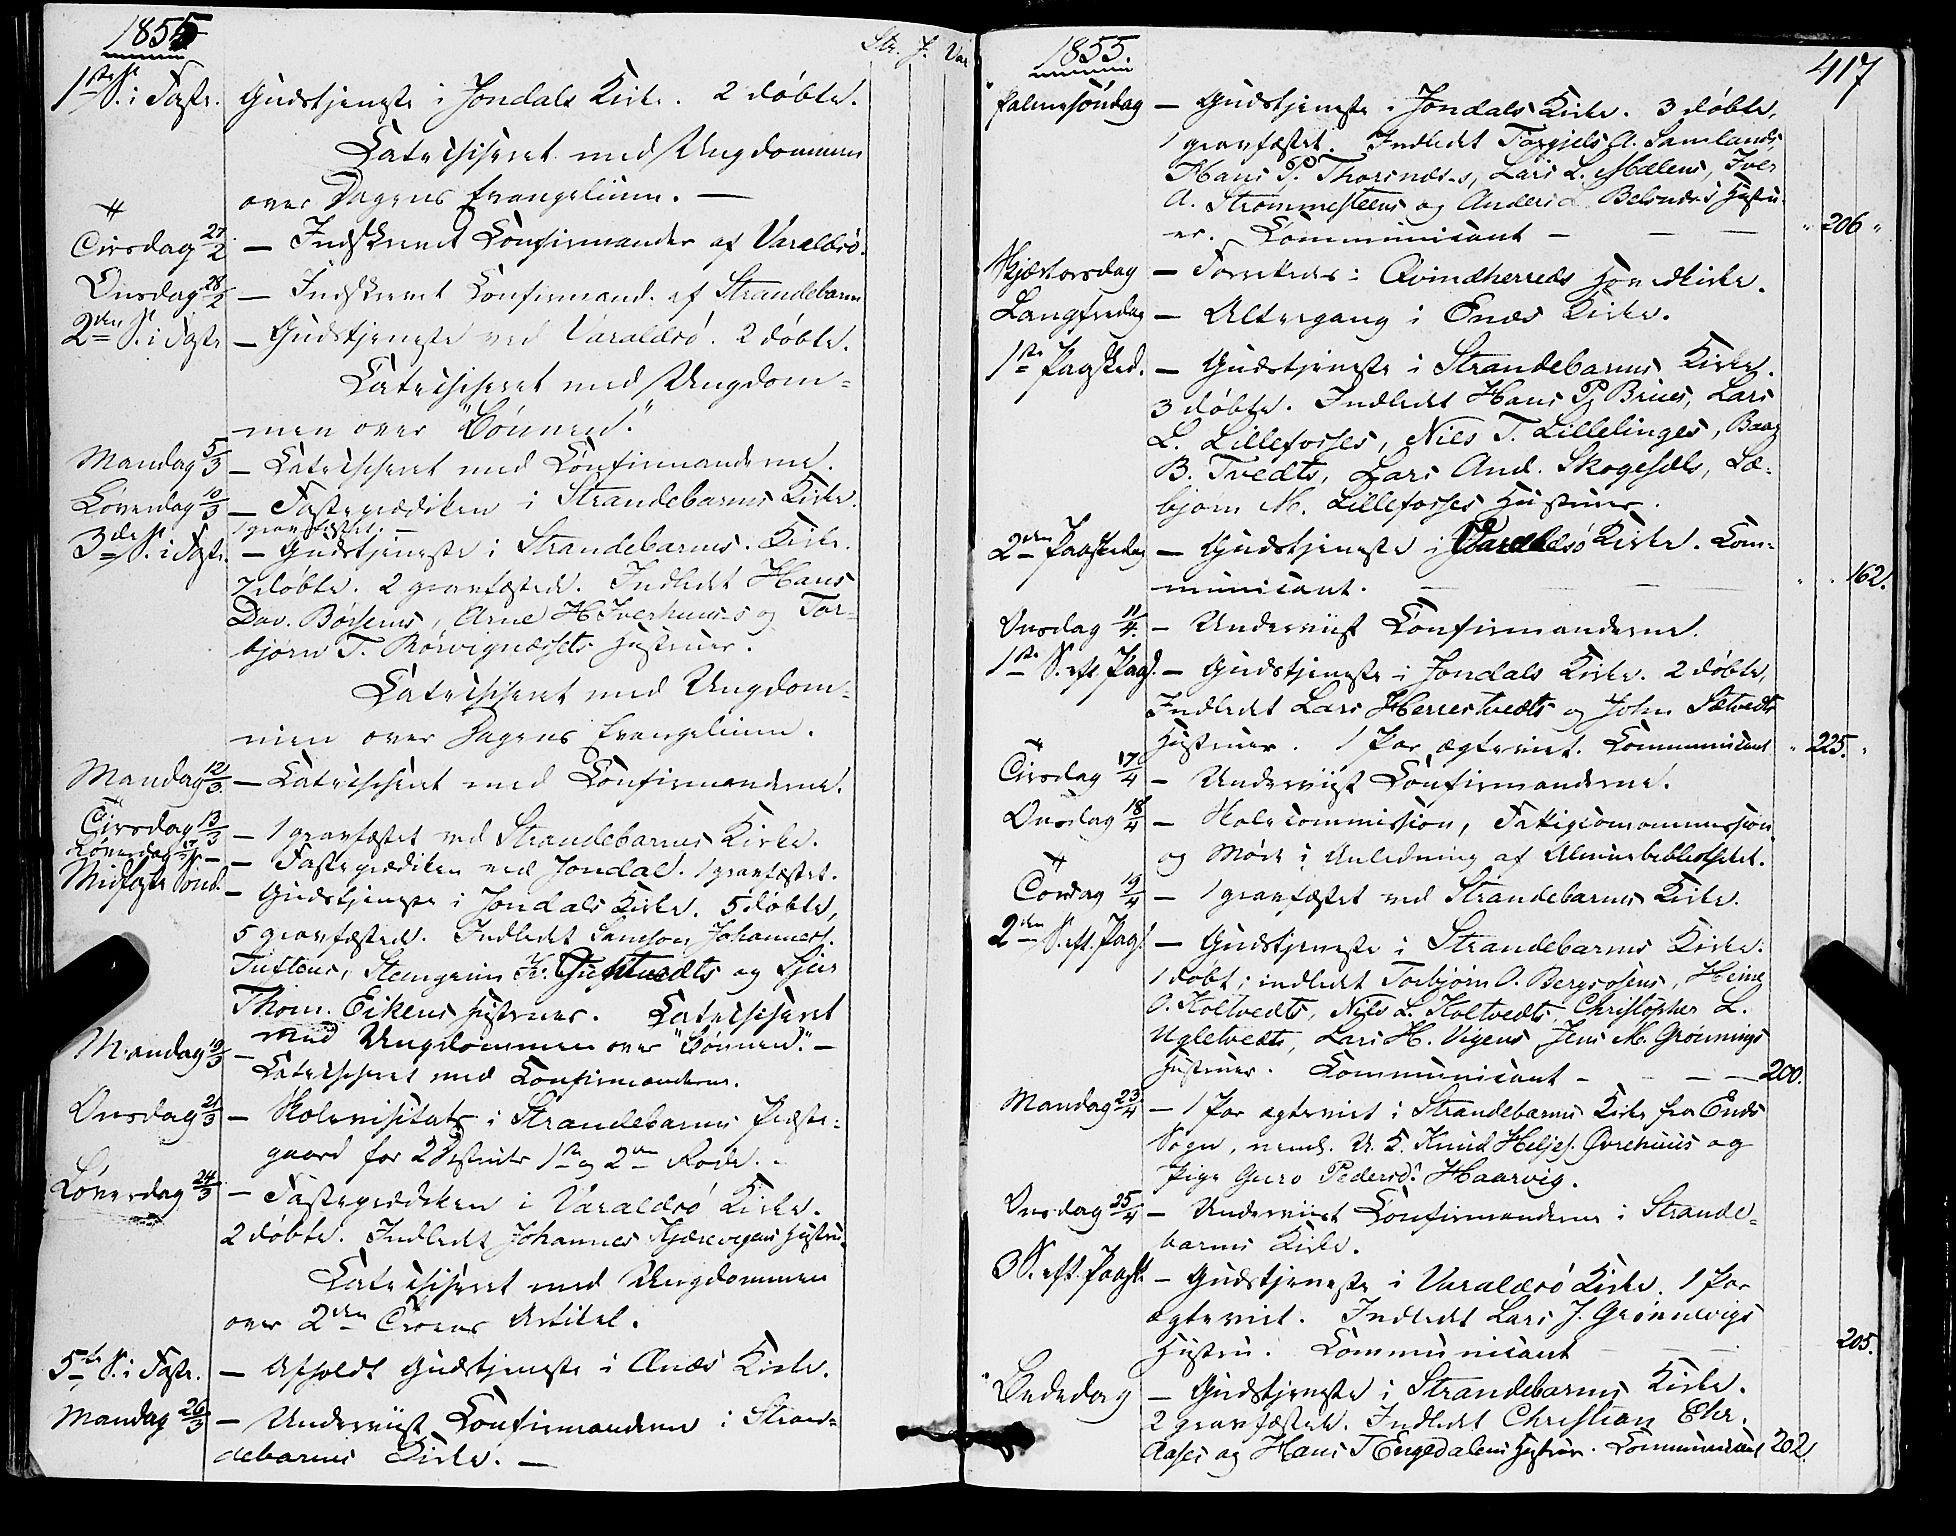 1855
Str. J. Var
1ste S. i Faste. Gudstjeneste i Jondals Kirke. 2 døbte.
Catechiseret med Ungdommen
over Dagens Evangelium. —
Tirsdag 27/2 — Indskrevet Confirmander af Varaldsø.
Onsdag 28/2 — Indskrevet Confirmand. af Strandebarm
2den S. i Faste — Gudstjeneste ved Varaldsø. 2 døbte.
Catechiseret med Ungdom-
men over "Bønnen".
Mandag 5/3 — Catechiseret med Confirmanderne.
Løverdag 10/3 — Fasteprædiken i Strandebarms Kirke.
1 gravfæstet. —
3die S. i Faste. — Gudstjeneste i Strandebarms Kirke.
7 døbte. 2 gravfæstede. Indledet Hans
Dav. Børsems, Arne H. Iverhuus's og Tor-
bjørn T. Børvignæssets Hustruer.
Catechiseret med Ungdom-
men over Dagens Evangelium.
Mandag 12/3 — Catechiseret med Confirmanderne.
Tirsdag 13/3 — 1 gravfæstet ved Strandebarms Kirke.
Løverdag 17/3 — Fasteprædiken ved Jondal. 1 gravfæstet.
Midfaste Sønd. — Gudstjeneste i Jondals Kirke. 5 døbte,
5 gravfæstede. Indledet Samson Johanness.
Tuftens, Steingrim og Sjur
Thom. Eikens Hustruer. Catechiseret
med Ungdommen over "Bønnen". —
Mandag 19/3 — Catechiseret med Confirmanderne.
Onsdag 21/3 — Skolevisitats i Strandebarms Præste-
gaard for 2 Distrikter 1ste og 2den Rode. -
Løverdag 24/3 — Fasteprædiken i Varaldsø Kirke.
2 døbte. Indledet Johannes Kjærevigens Hustru.
Catechiseret med Ungdommen
over 2den Troens Artikel.
5te S. i Faste. — Afholdt Gudstjeneste i Ænæs Kirke.
Mandag 26/3 — Underviist Confirmanderne i Stran-
debarms Kirke. —
1855.
417
Palmesøndag — Gudstjeneste i Jondals Kirke. 3 døbte,
1 gravfæstet. Indledet Torgjels A. Samlands,
Hans P. Thorsnæs's, Lars L. Mælens, Iver
A. Strømmesteens og Anders L. Belsnæs's Hustru-
er. Communicant — — — " 206 "
Skjærtorsdag — Forrettede i Qvindherreds Hovedkirke.
Langfredag — Altergang i Enæs Kirke.
1ste Paasked. — Gudstjeneste i Strandebarms Kirke.
3 døbte. Indledet Hans P. Brues, Lars
L. Lillefosses, Niels T. Lillelinges, Baar
B. Tvedts, Lars And. Skogesæls, Tor-
bjørn M. Lillefosses Hustruer.
2den Paaskedag — Gudstjeneste i Varaldsø Kirke. Com-
municant. — — — " " 162.
Onsdag 11/4. — Underviist Confirmanderne.
1ste S. eft. Paas. — Gudstjeneste i Jondals Kirke. 2 døbte,
Indledet Lars Herrestvedts og John Sætvedts
Hustruer. 1 Par ægteviet. Communicant " 225. "
Tirsdag 17/4 — Underviist Confirmanderne.
Onsdag 18/4 — Skolecommission, Fattigcommission
og Møde i Anledning af Almuebibliotheket.
Torsdag 19/4 — 1 gravfæstet ved Strandebarms Kirke.
2den S. eft. Paas. — Gudstjeneste i Strandebarms Kirke.
1 døbt; indledet Torbjørn O. Bergsosens, Heine
O. Holtvedts, Niels L. Holtvedts, Christopher L.
Ugletvedts, Lars H. Vigens, Jens M. Grønnings
Hustruer. Communicant - — — 200.
Mandag 23/4 — 1 Par ægteviet i Strandebarms Kirke fra Enæs
Sogn, nemlig U. K. Knud Heljes. Øvrehuus og
Pige Guro Pedersd. Haarvig.
Onsdag 25/4 — Underviist Confirmanderne i Strande-
barms Kirke.
3 S. eft. Paaske — Gudstjeneste i Varaldsø Kirke. 1 Par
ægteviet. Indledet Lars J. Grønnevigs
Hustru. Communicant — — 205.
Bededag — Gudstjeneste i Strandebarms Kirke.
2 gravfæstede. Indledet Christian Ehr.
Aases og Hans T Engedalens Hustruer. Communicant 202.